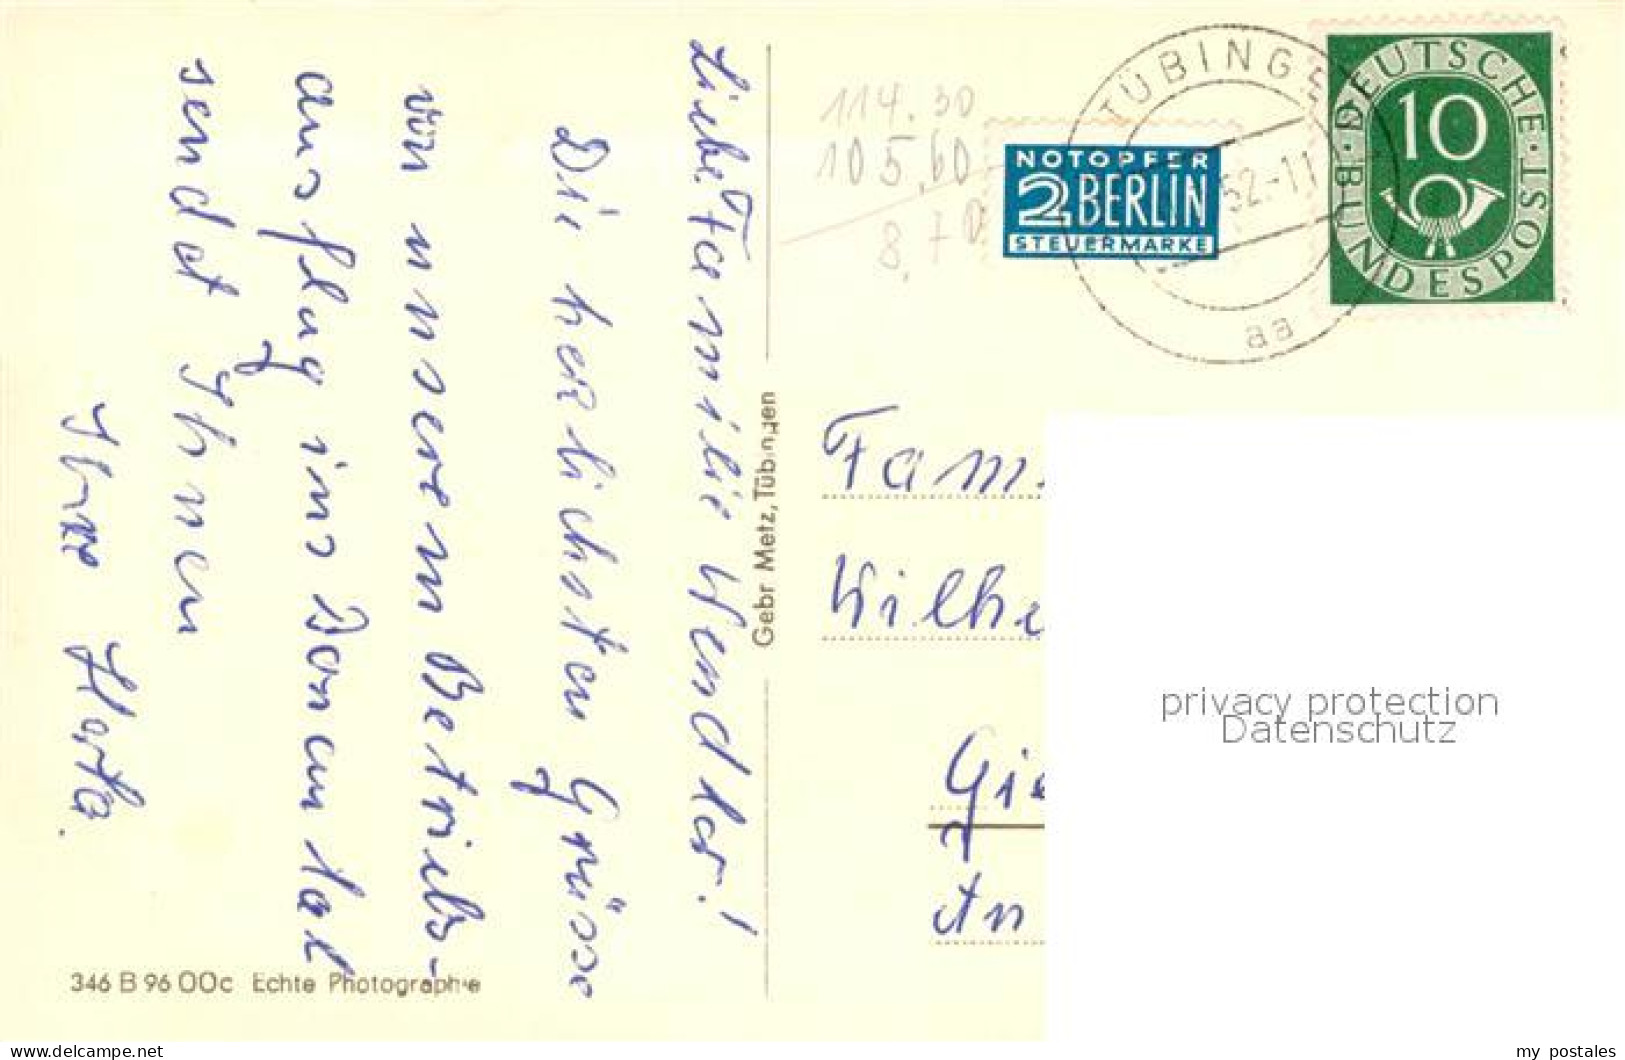 Liebe Familie Wendler!
Die herzlichsten Grüsse
von unserem Betriebs-
ausflug ins Donautal
sendet Ihnen
Ihre Herta.
346 B 96 00c Echte Photographie
Gebr Metz, Tübingen
114.30
105.60
8,70
NOTOPFER
2 BERLIN
STEUERMARKE
TÜBINGE
52.-11
aa
DEUTSCHE · BUNDESPOST ·
10
Fam.
Wilhe
Gie
An
privacy protection
Datenschutz
www.delcampe.net
my_postales